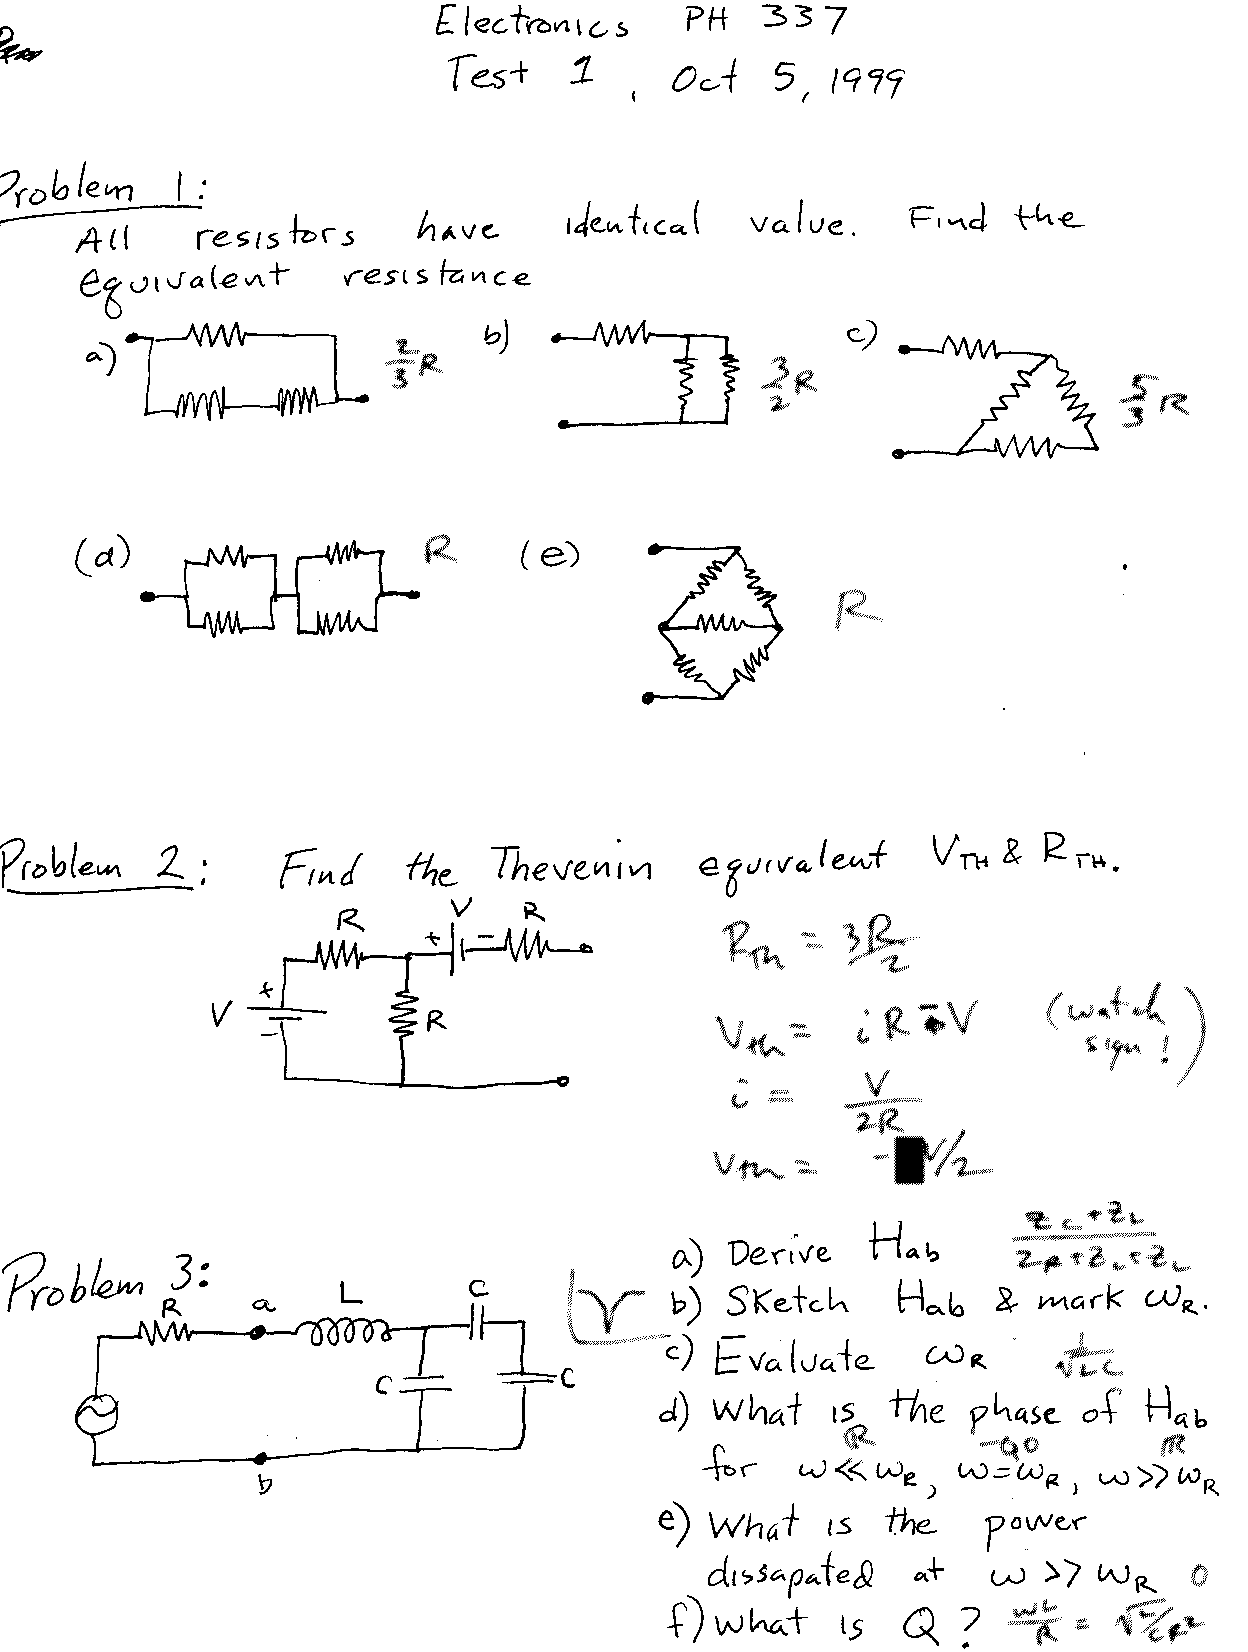 Electronics PH 337
Test 1, Oct 5, 1999
Problem 1:
All resistors have identical value. Find the
equivalent resistance
a) 2/3 R b) 3/2 R c) 5/3 R
(d) R (e) R
Problem 2: Find the Thevenin equivalent VTH & RTH.
R V R
+ -
V + - R
RTh = 3R/2
Vth = iR - V (watch sign!)
i = V/2R
Vth = -V/2
Problem 3:
R a L C
C C
b
a) Derive Hab
b) Sketch Hab & mark ωR.
c) Evaluate ωR 1/√LC
d) What is the phase of Hab
for ω << ωR, ω = ωR, ω >> ωR
e) What is the power
dissapated at ω >> ωR 0
f) What is Q? ωL/R = √L/CR²